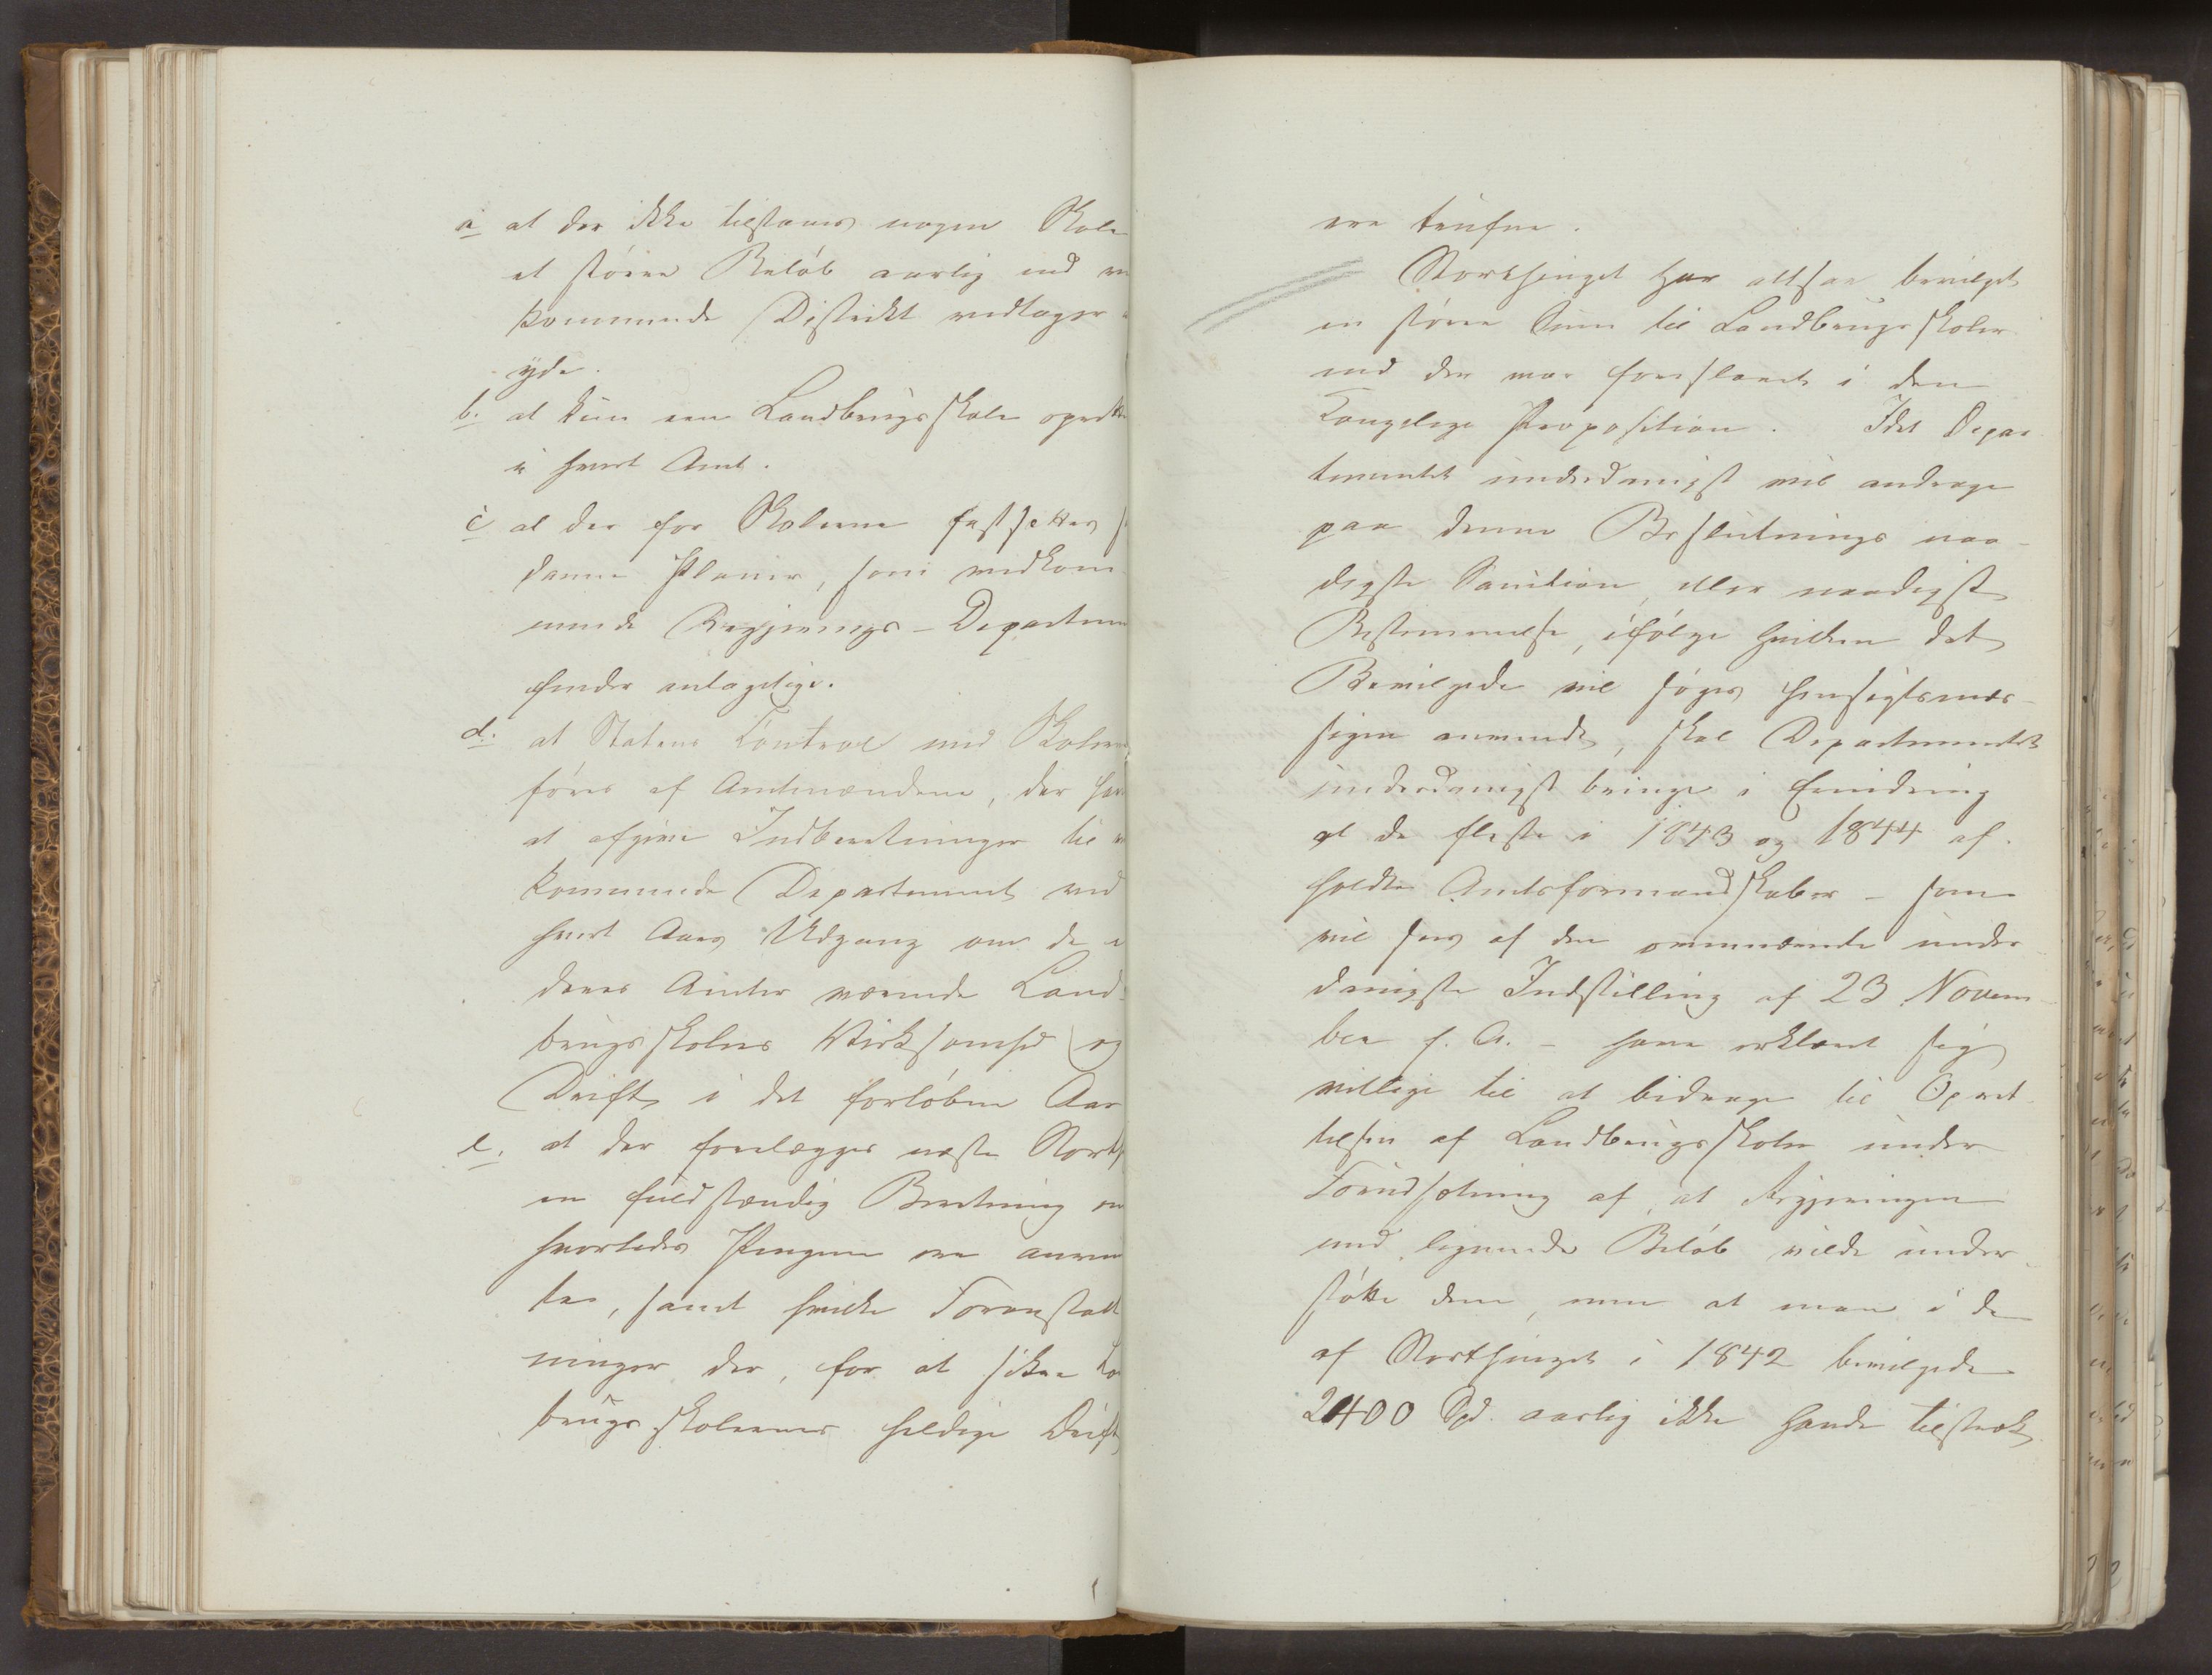 a at der ikke tilstaaes nogen Skole
et større Beløb aarlig end ved
kommende Distrikt vedtager a
yde.
b. at kun een Landbrugsskole oprette
i hvert Amt.
c at der for Skolerne fastsættes s
danne Planer, som vedkom
mende Regjerings-Departem
finder antagelige.
d. at Statens Control med Skolern
føres af Amtmændene, der have
at afgive Indberetninger til v
kommende Departement ved
hvert Aars Udgang om de i
deres Amter værende Land-
brugsskolers Virksomhed og
Drift i det forløbne Aar
e. at der forelægges næste Storth
en fuldstændig Beretning om
hvorledes Pengene ere anven
te, samt hvilke Foranstalt
ninger der, for at sikre La
brugsskolernes heldige Drift
ere trufne.
Storthinget har altsaa bevilget
en større Sum til Landbrugsskoler
end der var foreslaaet i den
Kongelige Proposition. Idet Depar
tementet underdanigst vil andrage
paa denne Beslutnings naa-
digste Sanction, eller naadigst
Bestemmelse, ifølge hvilken det
Bevilgede vil søges hensigtsmæs-
sigen anvendt, skal Departementet
underdanigst bringe i Erindring
at de fleste i 1843 og 1844 af-
holdte Amtsformandskaber - som
vil sees af den omnævnte under
danigste Indstilling af 23 Novem-
ber f. A. - have erklæret sig
villige til at bidrage til Opret-
telsen af Landbrugsskoler under
Forudsætning af, at Regjeringen
med lignende Beløb vilde under-
støtte dem, men at man i de
af Storthinget i 1842 bevilgede
2400 Spd. aarlig ikke havde tilstræk